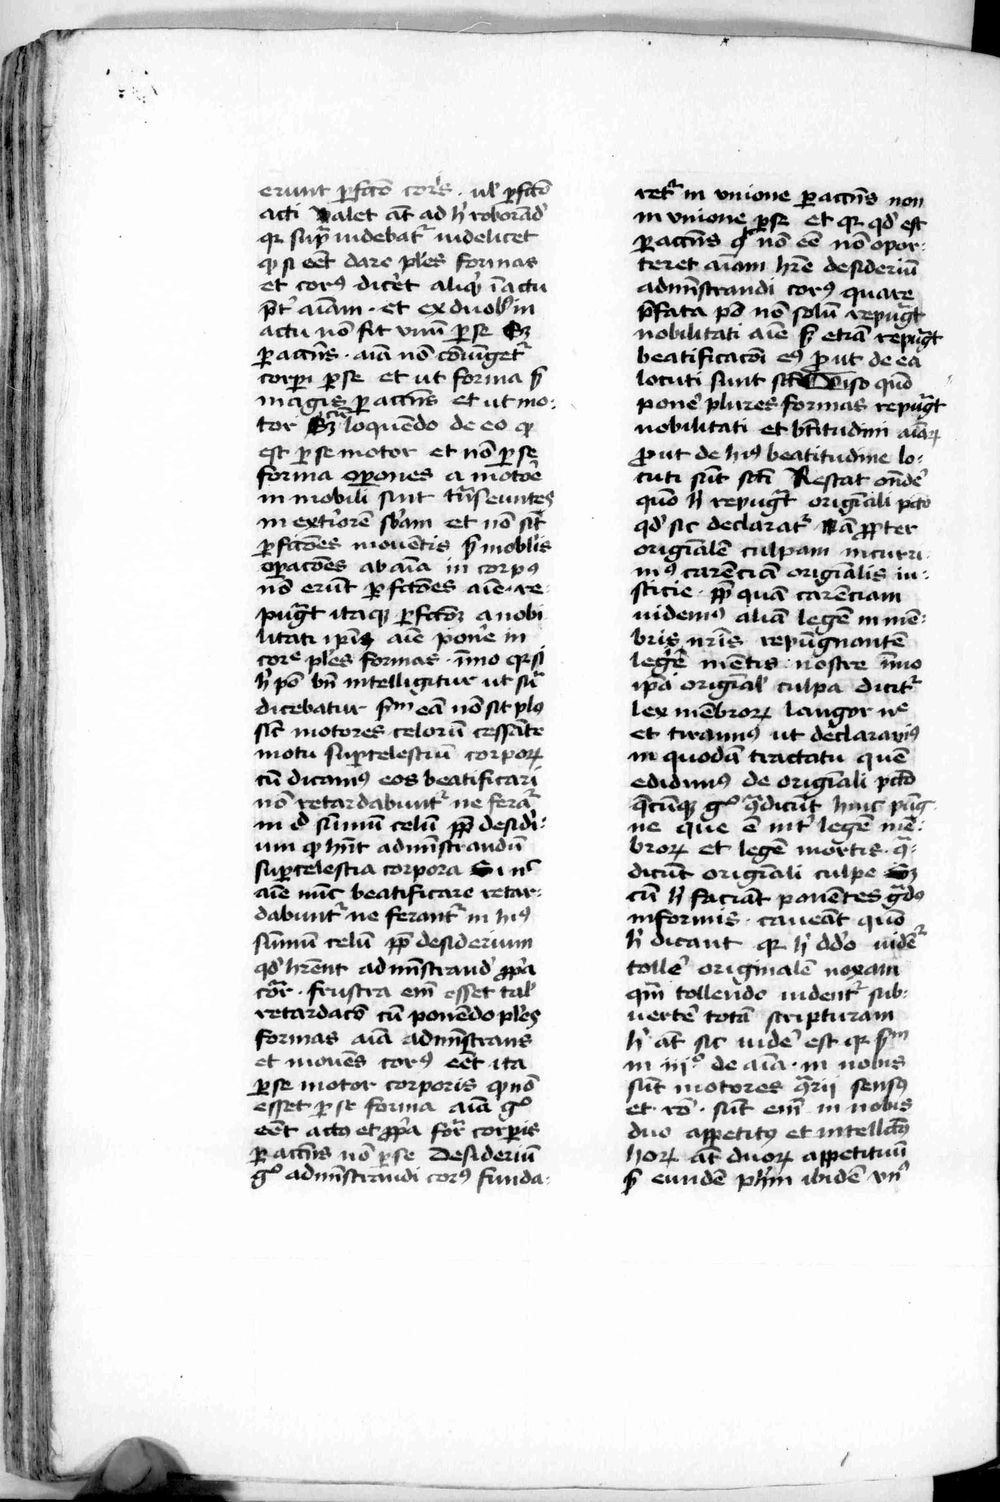 erunt ꝑfcō corꝭs · ul ꝑfcō
acti Valet āt ad h̓ roborād̓
qꝛ supͣ uidebatᷣ uidelicet
ꝙ si eēt dare pl̓es formas
et corꝰ dic̓et aliq̓ ī actu
p̄t̓ aīam · et ex duobꝰ in
actu nō fit vnū ꝑ se Sꝫ
ꝑ accn̄s · aīa nō cōiūgetᷣ
corpi ꝑ se et ut forma sꝫ
magis ꝑ accn̄s et ut mo-
tor Sꝫ loquendo de eo ꝙ
est ꝑ se motor et nō ꝑ se
forma oꝑones a motoē
in mobili sunt trāseuntes
in exteriorē m̄am et nō sūt
ꝑfcōes mouentis sꝫ mobil̓is
oꝑacōes ab aīa in corpꝰ
nō erūt ꝑfcōes aīe · re-
pugt̄ itaqꝫ ꝑfcōi a nobi
litati ip̄iꝰ aīe pone in
core pl̓es formas · īmo qꝛ si
h̓ pō bn̄ intelligitur ut sup̄
dicebatur scd̄m eā nō sit plꝰ
sic̄ motores celorū cessāte
motu suꝑcelestiū corporꝝ
cū dicamꝰ eos beatificari
nō retardabuntᷣ ne ferātᷣ
in id sūmū celū ꝓp̄ desid̓i-
um ꝙ hn̄t admīstrandū
suꝑcelestia corpora Sic nec
aīe nūc beatificate retar-
dabuntᷣ ne ferantᷣ in hꝰ
sūmū celū ꝓp̄ desiderium
qd̓ hrēnt admīstrand̓ ꝓp̄a
cor̄a · frustra em̄ esset tal̓
retardacō cū ponendo pl̓es
formas aīa admīstrans
et mouēs corꝰ eēt ita
ꝑ se motor corporis ꝙ nō
esset ꝑ se forma aīa gͦ
eēt actꝰ et ꝓp̄a for̄ corꝑis
ꝑ accn̄s nō ꝑ se Desideriū
gͦ admīstrandi corꝰ funda-
retᷣ in vnione ꝑ accn̄s non
in vnione ꝑ se et qꝛ qd̓ est
ꝑ accn̄s pͭ nō eē nō opor-
teret aīam hr̄e desideriū
admīstrandi corꝰ quare
p̄fata pō nō solū repugt̄
nobilitati aīe sꝫ etiā repugt̄
beatificacōi eꝰ ꝓut de ea
locuti sunt sc̄i Viso quō
pone̓ plures formas repugt̄
nobilitati et bt̄itudini aīarꝝ
ꝓut de hꝰ beatitudine lo-
cuti sūt sc̄i Restat ondē
quō h̓ repugt̄ origīali pcc̄o
qd̓ sic declaratᷣ Nā ꝓpter
origīalē culpam incurri-
mꝰ carēciā origīalis iu-
sticie · ꝓp̄ quā carēciam
uidemꝰ aliā legē in mē-
bris nr̄is repugnantē
legē mētis nostre īmo
ip̄a origīal̓ culpa dicitᷣ
lex mēbrorꝝ langor nͤ
et tirannꝰ ut declarauimꝰ
in quodā tractatu quē
edidimꝰ de origīali pcc̄o
qͣcūqꝫ gͦ q̄dicūt huic pug-
ne que ē int̓ legē mē-
brorꝝ et legē mētis · q̄-
dicūt origīali culpe Sꝫ
cū h̓ faciāt ponentes gͣdꝰ
in formis · caueāt quō
h̓ dicant qꝛ h̓ dcō uidēᷣ
tolle̓ originalē noxam
qm̄ tollendo uidentᷣ sub-
uerte̓ totā scripturam
h̓ āt sic uide̓ est qꝛ scd̄m
in iijͦ de aīa · in nobis
sūt motores 9rii sensꝰ
et rō · sūt em̄ in nobis
duo appetitꝰ et intellcūs
horꝝ āt duorꝝ appetituū
scd̄m eundē ph̄m ibidē vnꝰ